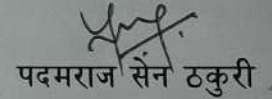 पदमराज सेन ठकुरी